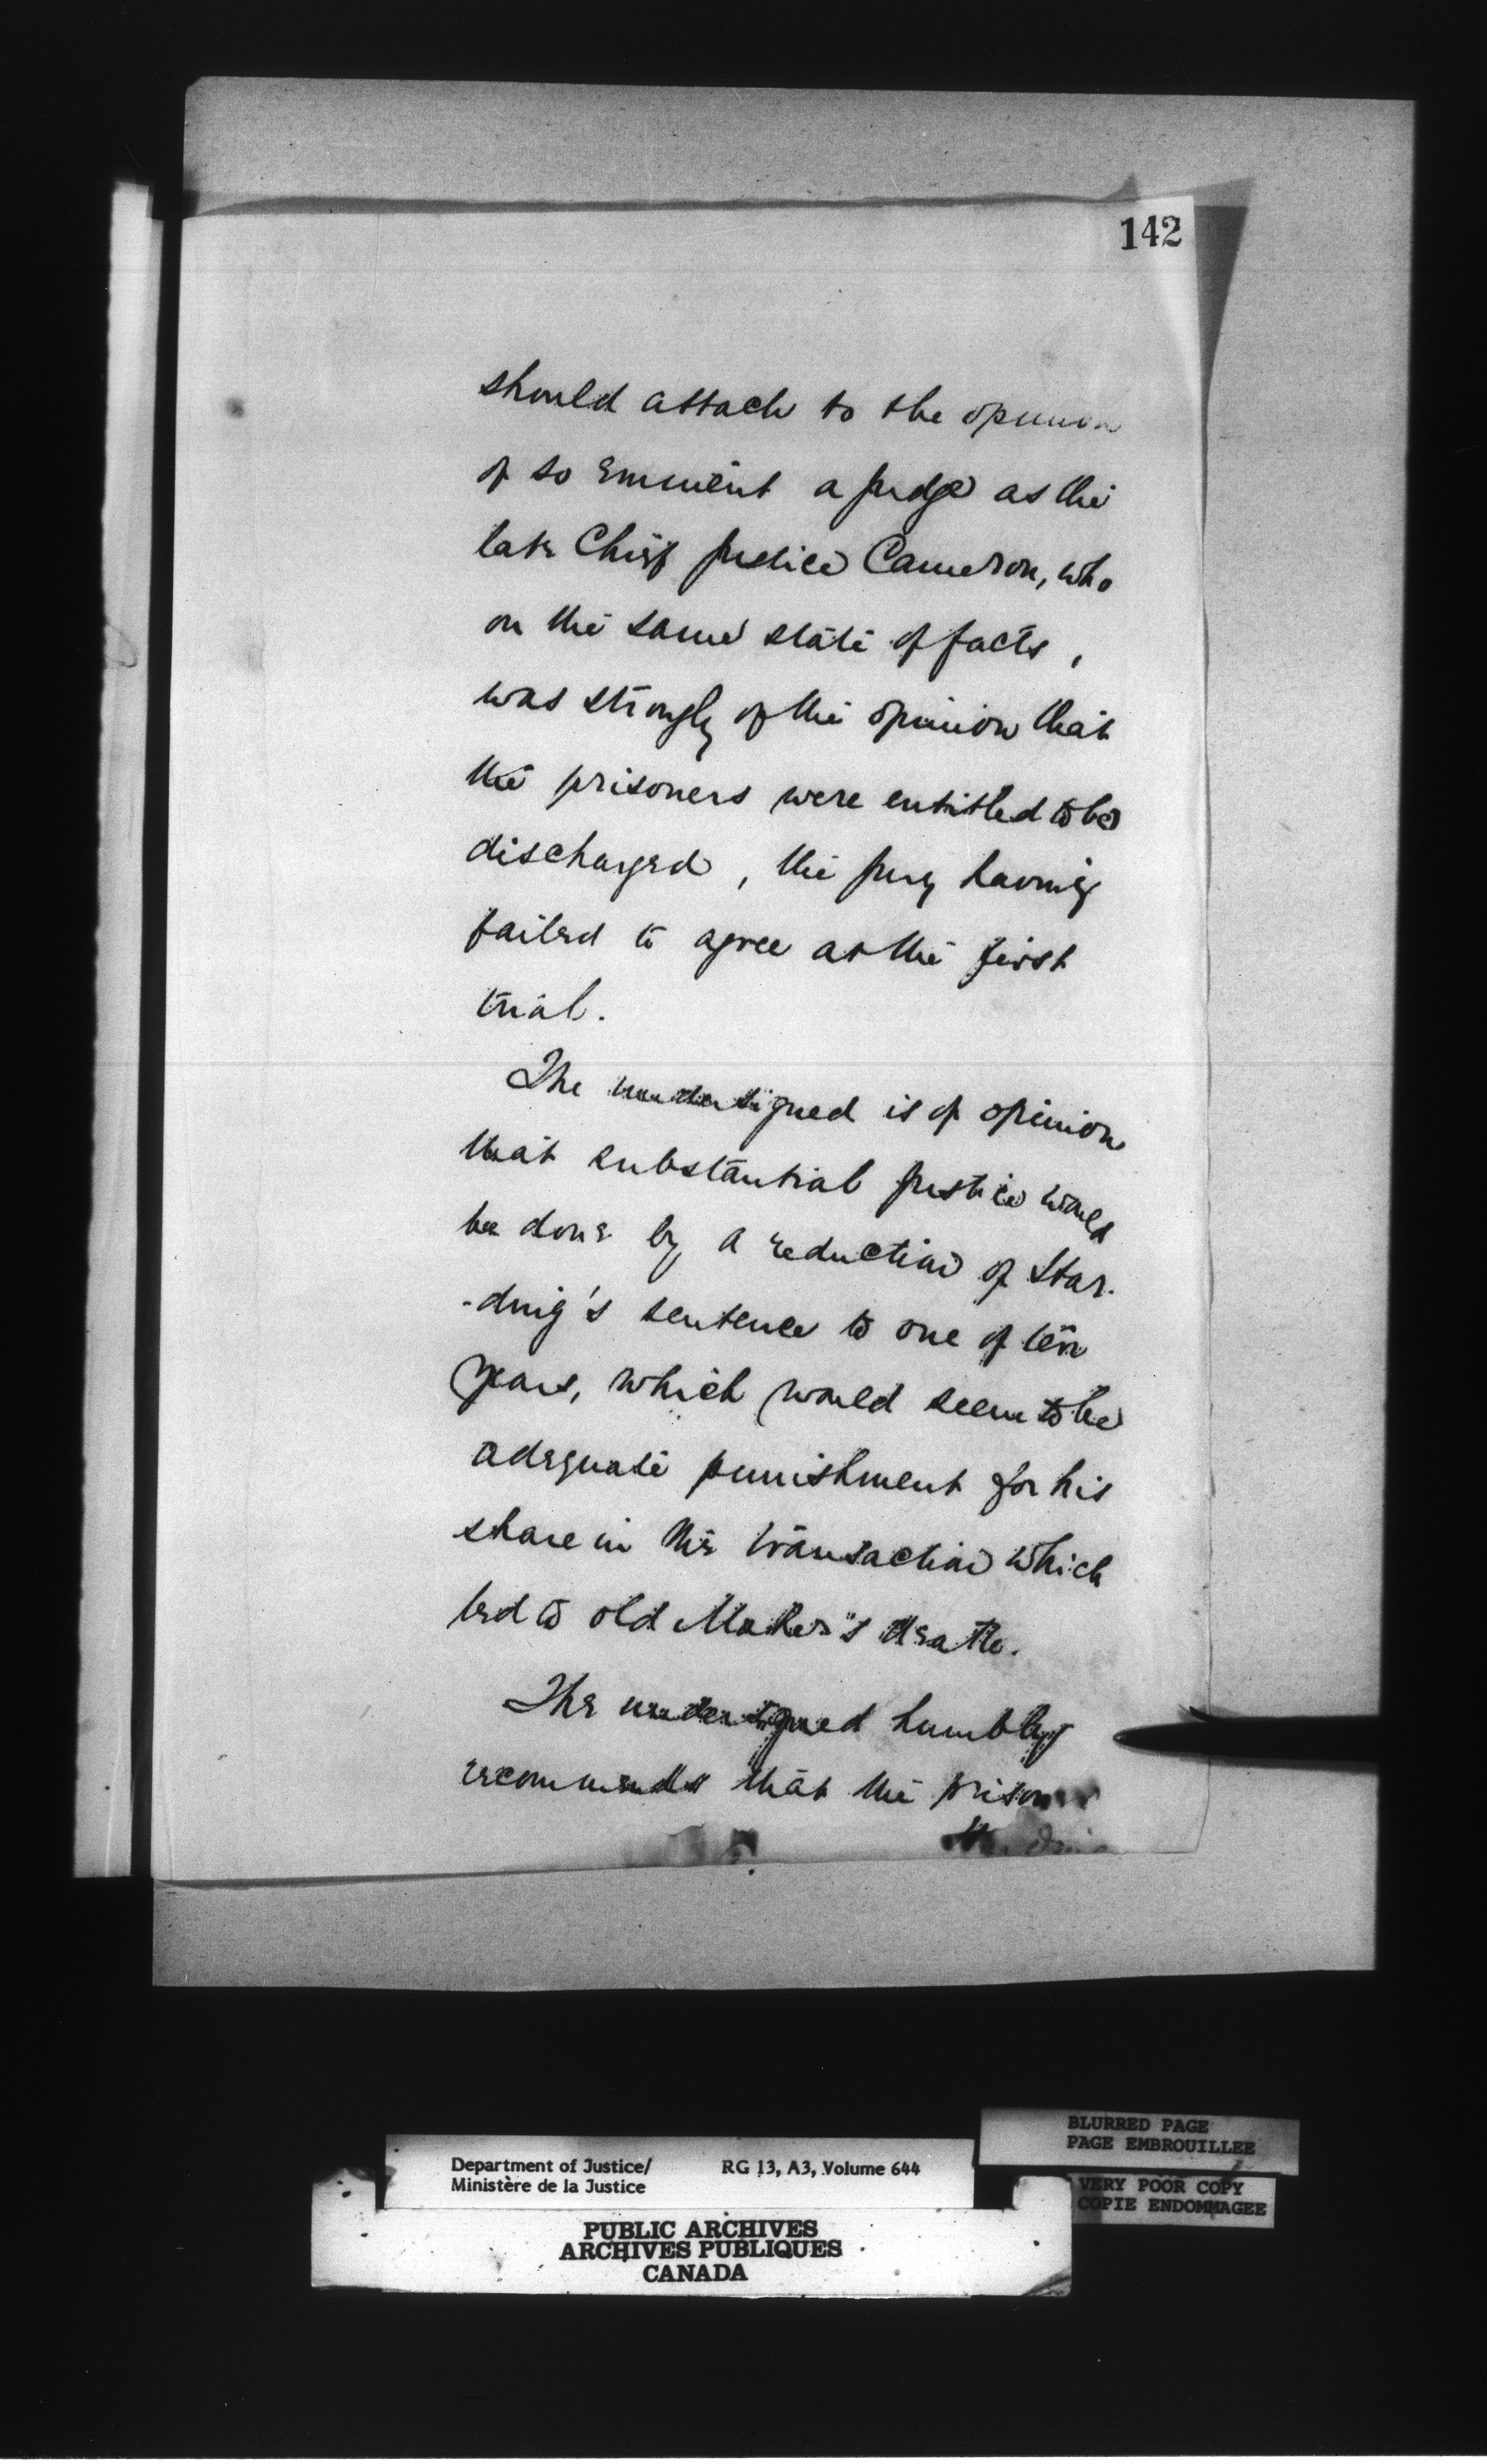 142
should attach to the opinion
of so eminent a judge as the
late Chief Justice Cameron, who
on the same state of facts,
was strongly of the opinion that
the prisoners were entitled to be
discharged, the jury having
failed to agree at the first
trial.
The undersigned is of opinion
that substantial justice would
be done by a reduction of Star-
-ding's sentence to one of ten
years, which would seem to be
adequate punishment for his
share in the transaction which
led to old Maher's death.
The undersigned humbly
recommends that the prisoner
BLURRED PAGE
PAGE EMBROUILLEE
VERY POOR COPY
COPIE ENDOMMAGEE
Department of Justice/ RG 13, A3, Volume 644
Ministère de la Justice
PUBLIC ARCHIVES
ARCHIVES PUBLIQUES
CANADA